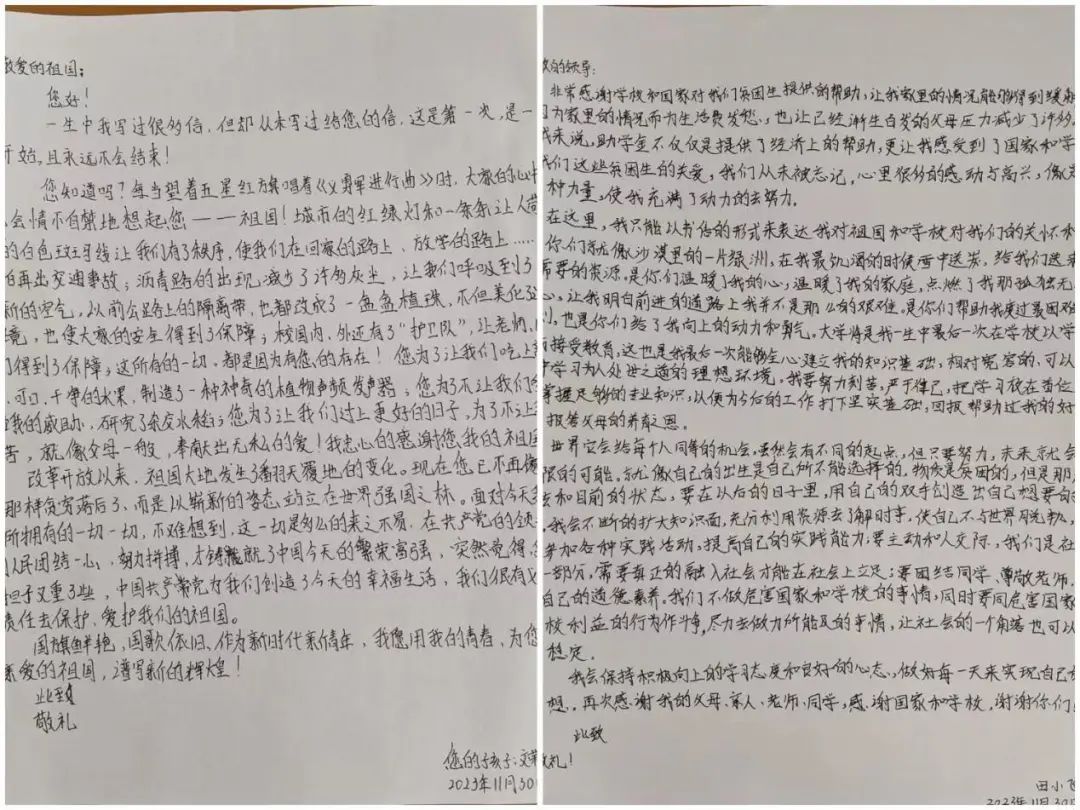 敬爱的祖国：
您好！
一生中我写过很多信，但却从未写过给您的信，这是第一次，是一
开始，且永远不会结束！
您知道吗？每当望着五星红旗唱着《义勇军进行曲》时，大家的心中
会情不自禁地想起您——祖国！城市的红绿灯和一条条让人
的白色斑马线让我们有了秩序，使我们在回家的路上、放学的路上……
再出交通事故；沥青路的出现，减少了许多灰尘，让我们呼吸到了
新的空气，从前公路上的隔离带，也都改成了一盆盆植珠，不但美化
境，也使大家的安全得到了保障；校园内、外还有了“护卫队”，让老师、
们得到了保障；这所有的一切，都是因为有您的存在！您为了让我们吃上
、可口、干净的水果，制造了一种神奇的植物声频发声器；您为了不让我们
我的威胁，研究了杂交水稻；您为了让我们过上更好的日子，为了不让
苦，就像父母一般，奉献出无私的爱！我忠心的感谢您我的祖国
改革开放以来，祖国大地发生了翻天覆地的变化。现在您已不再像
那样贫穷落后了，而是以崭新的姿态站立在世界强国之林。面对今天
所拥有的一切一切，不难想到，这一切是多么的来之不易。在共产党的领
人民团结一心、努力拼搏，才铸就了中国今天的繁荣富强，突然觉得
担子又重了些，中国共产党为我们创造了今天的幸福生活，我们很有
责任去保护、爱护我们的祖国。
国旗鲜艳，国歌依旧，作为新时代新青年，我愿用我的青春，为您
亲爱的祖国，谱写新的辉煌！
此致
敬礼
您的孩子：文
2023年11月30
敬的领导：
非常感谢学校和国家对我们贫困生提供的帮助，让我家里的情况能够得到缓解
因为家里的情况而为生活费发愁，也让已经渐生白发的父母压力减少了许多。
我来说，助学金不仅仅是提供了经济上的帮助，更让我感受到了国家和学
我们这些贫困生的关爱，我们从未被忘记，心里很多的感动与高兴，像
种力量，使我充满了动力的去努力。
在这里，我只能以书信的形式来表达我对祖国和学校对我们的关怀和
你们就像沙漠里的一片绿洲，在我最饥渴的时候雪中送炭，给我们送来
需要的资源。是你们温暖了我的心，温暖了我的家庭，点燃了我那孤独无
心，让我明白前进的道路上我并不是那么的艰难，是你们帮助我度过最困难
刻，也是你们给了我向上的动力和勇气。大学将是我一生中最后一次在学校以学
而接受教育，这也是我最后一次能够全心建立我的知识基础，相对宽容的，可以
中学习为人处世之道的理想环境，我要努力刻苦，严于律己，把学习放在首位
掌握足够的专业知识，以便为今后的工作打下坚实基础，回报帮助过我的好
报答父母的养育之恩。
世界它会给每个人同等的机会，虽然会有不同的起点，但只要努力，未来就会
限的可能，就像自己的出生是自己所不能选择的，物质是贫困的，但是那
去和目前的状态，要在以后的日子里，用自己的双手创造出自己想要的
我会不断的扩大知识面，充分利用资源去了解时事，使自己不与世界脱轨，
参加各种实践活动，提高自己的实践能力；要主动和人交际，我们是社
一部分，需要真正的融入社会才能在社会上立足；要团结同学、尊敬老师、
自己的道德素养。我们不做危害国家和学校的事情，同时要同危害国家
校利益的行为作斗争，尽力去做力所能及的事情，让社会的一个角落也可以
稳定。
我会保持积极向上的学习态度和良好的心态，做好每一天来实现自己
想，再次感谢我的父母、家人、老师、同学，感谢国家和学校，谢谢你们
此致
敬礼！
田小飞
2023年11月30日